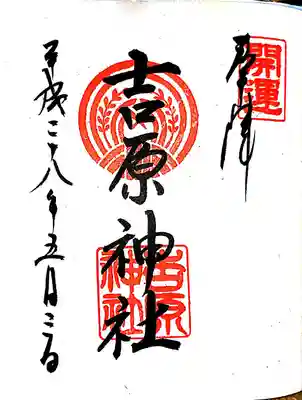 開運
奉拝
吉原神社
吉原神社
平成二十八年五月三日